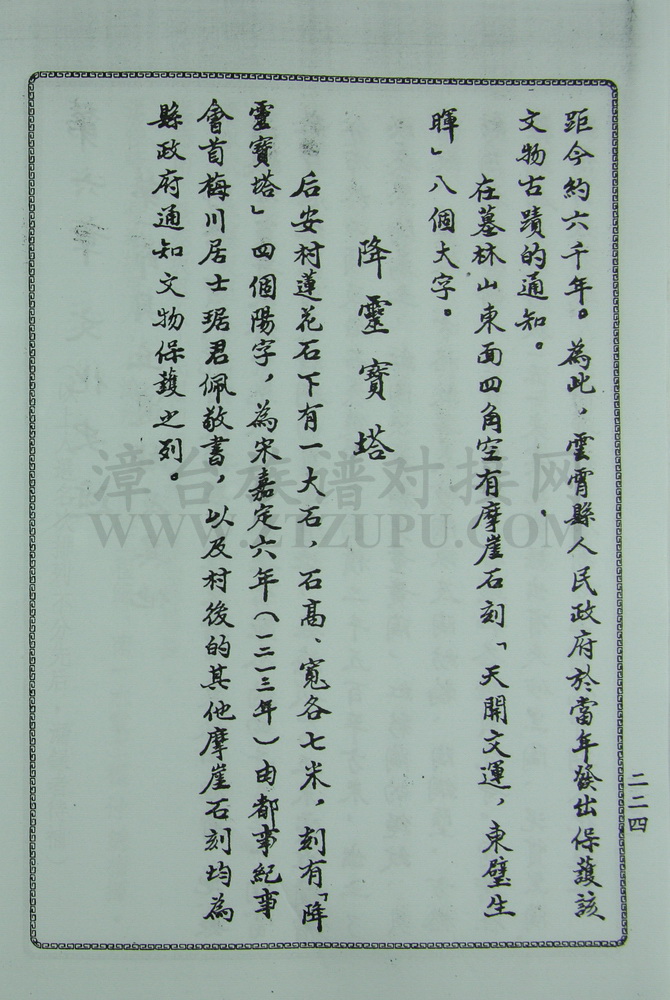 距今約六千年。為此，雲霄縣人民政府於當年發出保護該
文物古蹟的通知。
在墓林山東面四角空有摩崖石刻「天開文運，東璧生
暉」八個大字。
降靈寶塔
后安村蓮花石下有一大石，石高、寬各七米，刻有「降
靈寶塔」四個陽字，為宋嘉定六年（一二一三年）由都事紀事
會首梅川居士琚君佩敬書，以及村後的其他摩崖石刻均為
縣政府通知文物保護之列。
二二四
漳台族谱对接网
WWW.ZTZUPU.COM